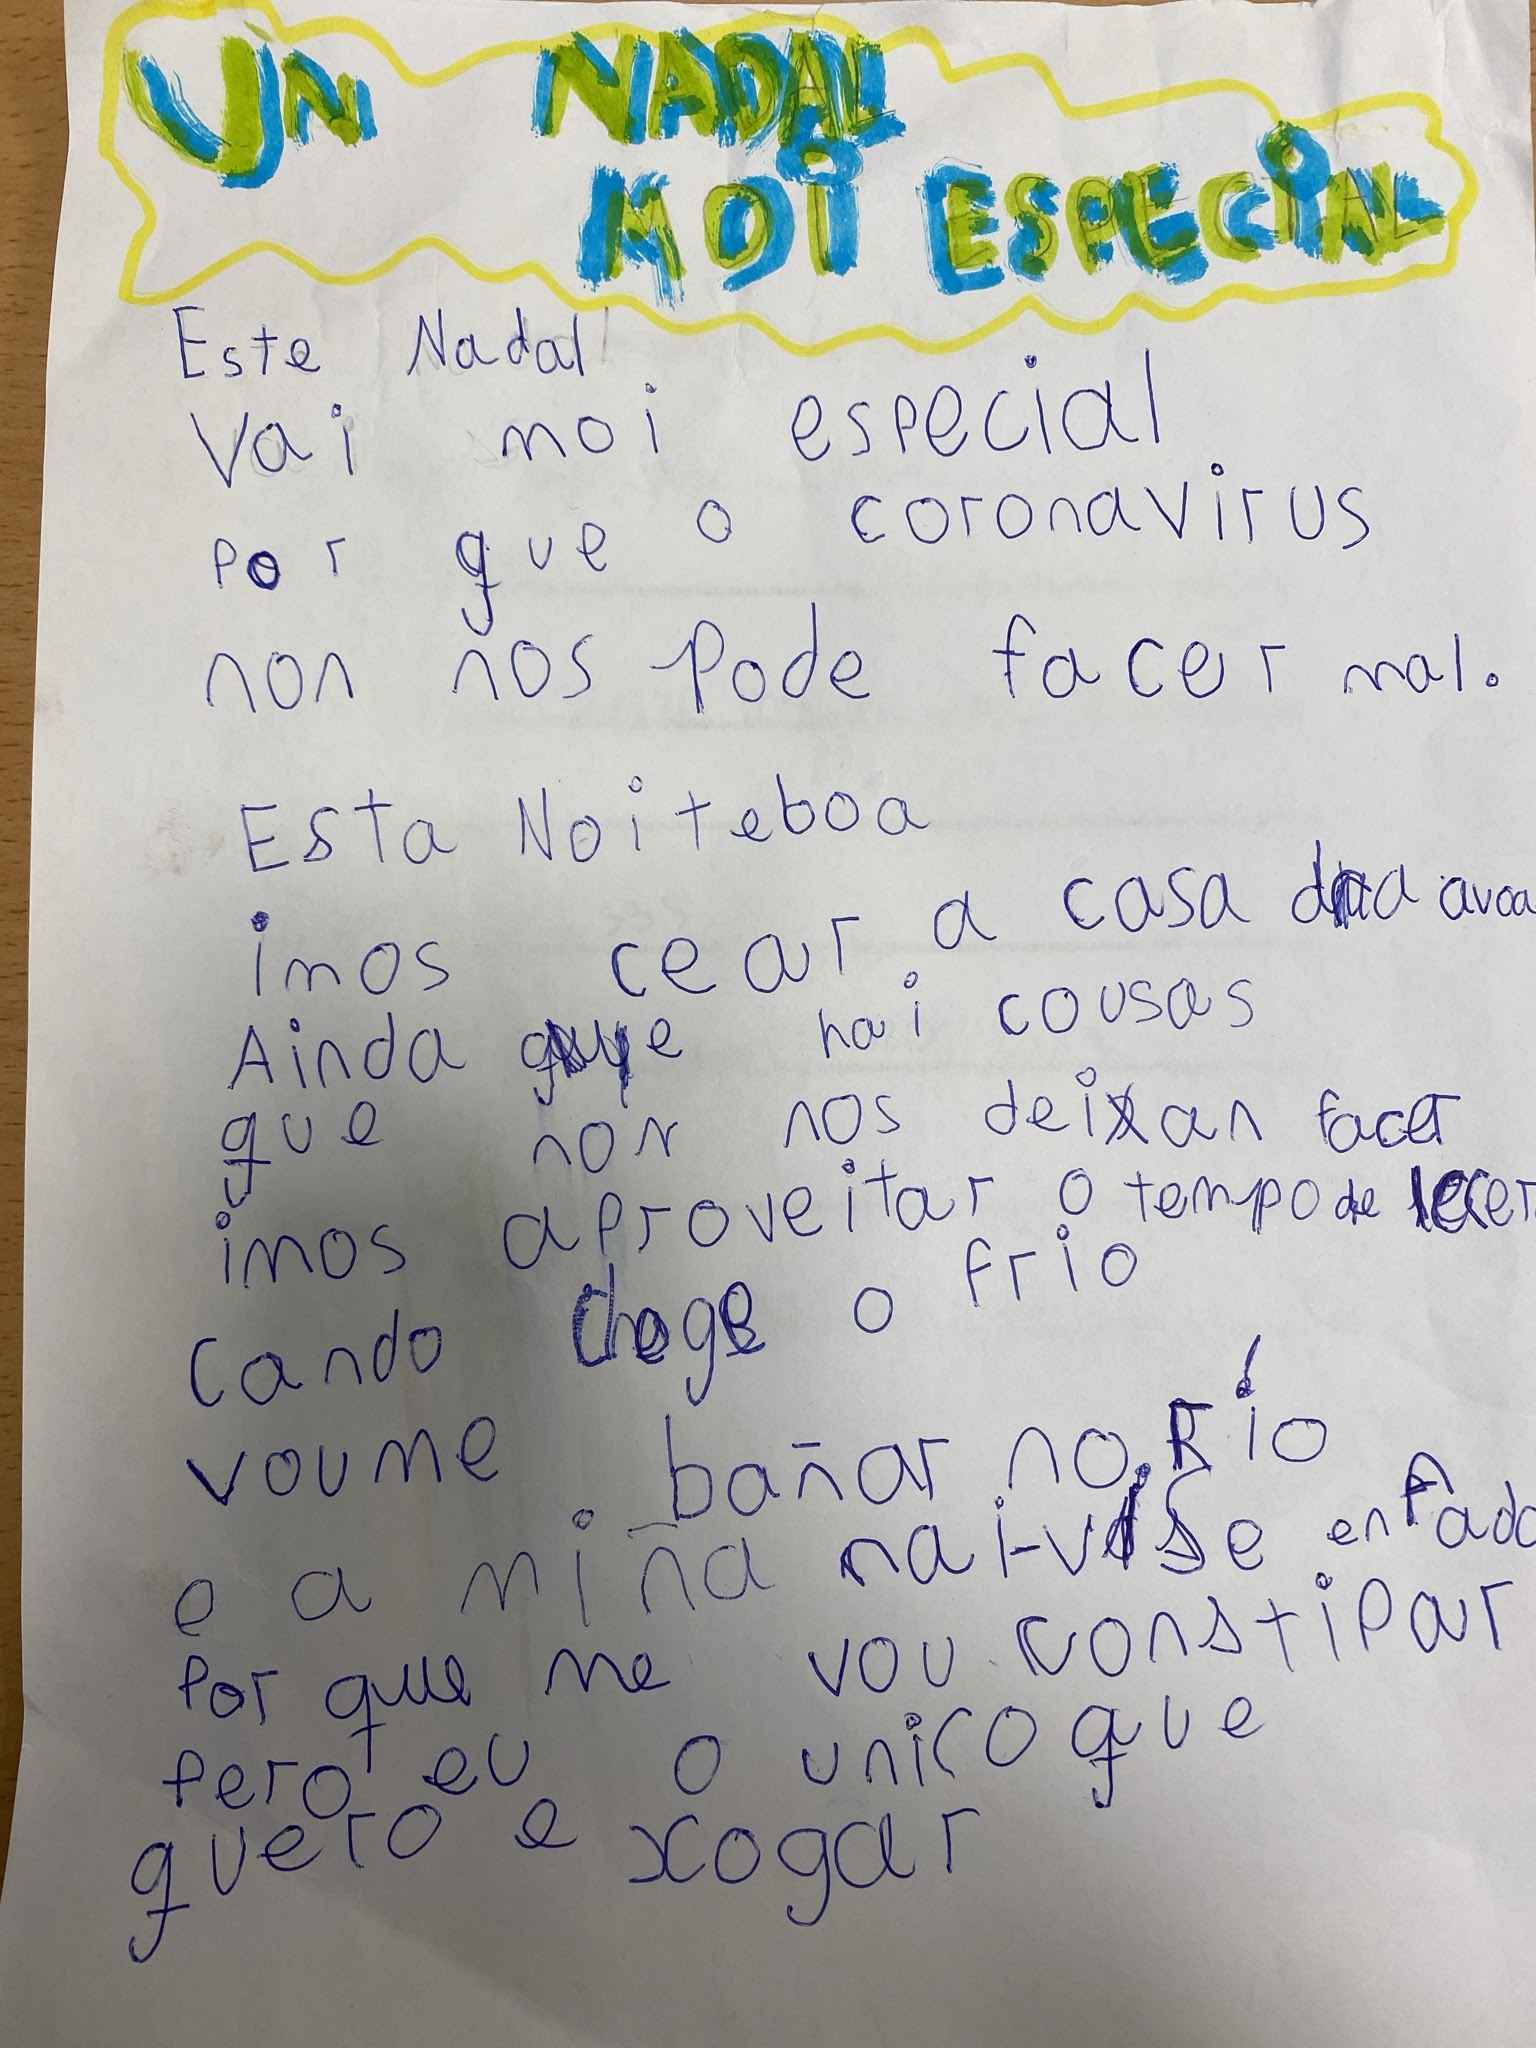 UN NADAL
MOI ESPECIAL
Este Nadal
Vai moi especial
por que o coronavirus
non nos pode facer mal.
Esta Noiteboa
imos cear a casa da avoa
Ainda que hai cousas
que non nos deixan facer
imos aproveitar o tempo de lecer
Cando chege o frio
voume bañar no río
e a miña nai vaise enfada
por que me vou constipar
pero eu o unico que
quero e xogar